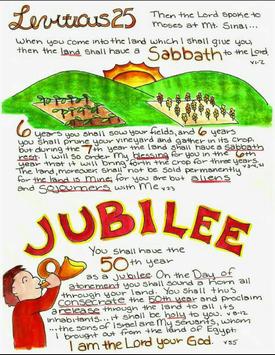 Leviticus 25
Then the Lord spoke to
Moses at Mt. Sinai...
When you come into the land which I shall give you,
then the land shall have a Sabbath to the Lord.
v1-2
6 years you shall sow your fields, and 6 years
you shall prune your vineyard and gather in its crop,
but during the 7th year the land shall have a Sabbath
rest. I will so order My blessing for you in the 6th
year that it will bring forth the crop for three years.
The land, moreover, shall not be sold permanently
for the land is Mine; for you are but aliens
and sojourners with Me v23
JUBILEE
You shall have the
50th year
as a Jubilee. On the Day of
atonement you shall sound a horn all
through your land. You shall thus
consecrate the 50th year and proclaim
a release through the land to all its
inhabitants... it shall be holy to you. v8-12
...the sons of Israel are My servants, whom
I brought out from the land of Egypt
I am the Lord your God.
v55